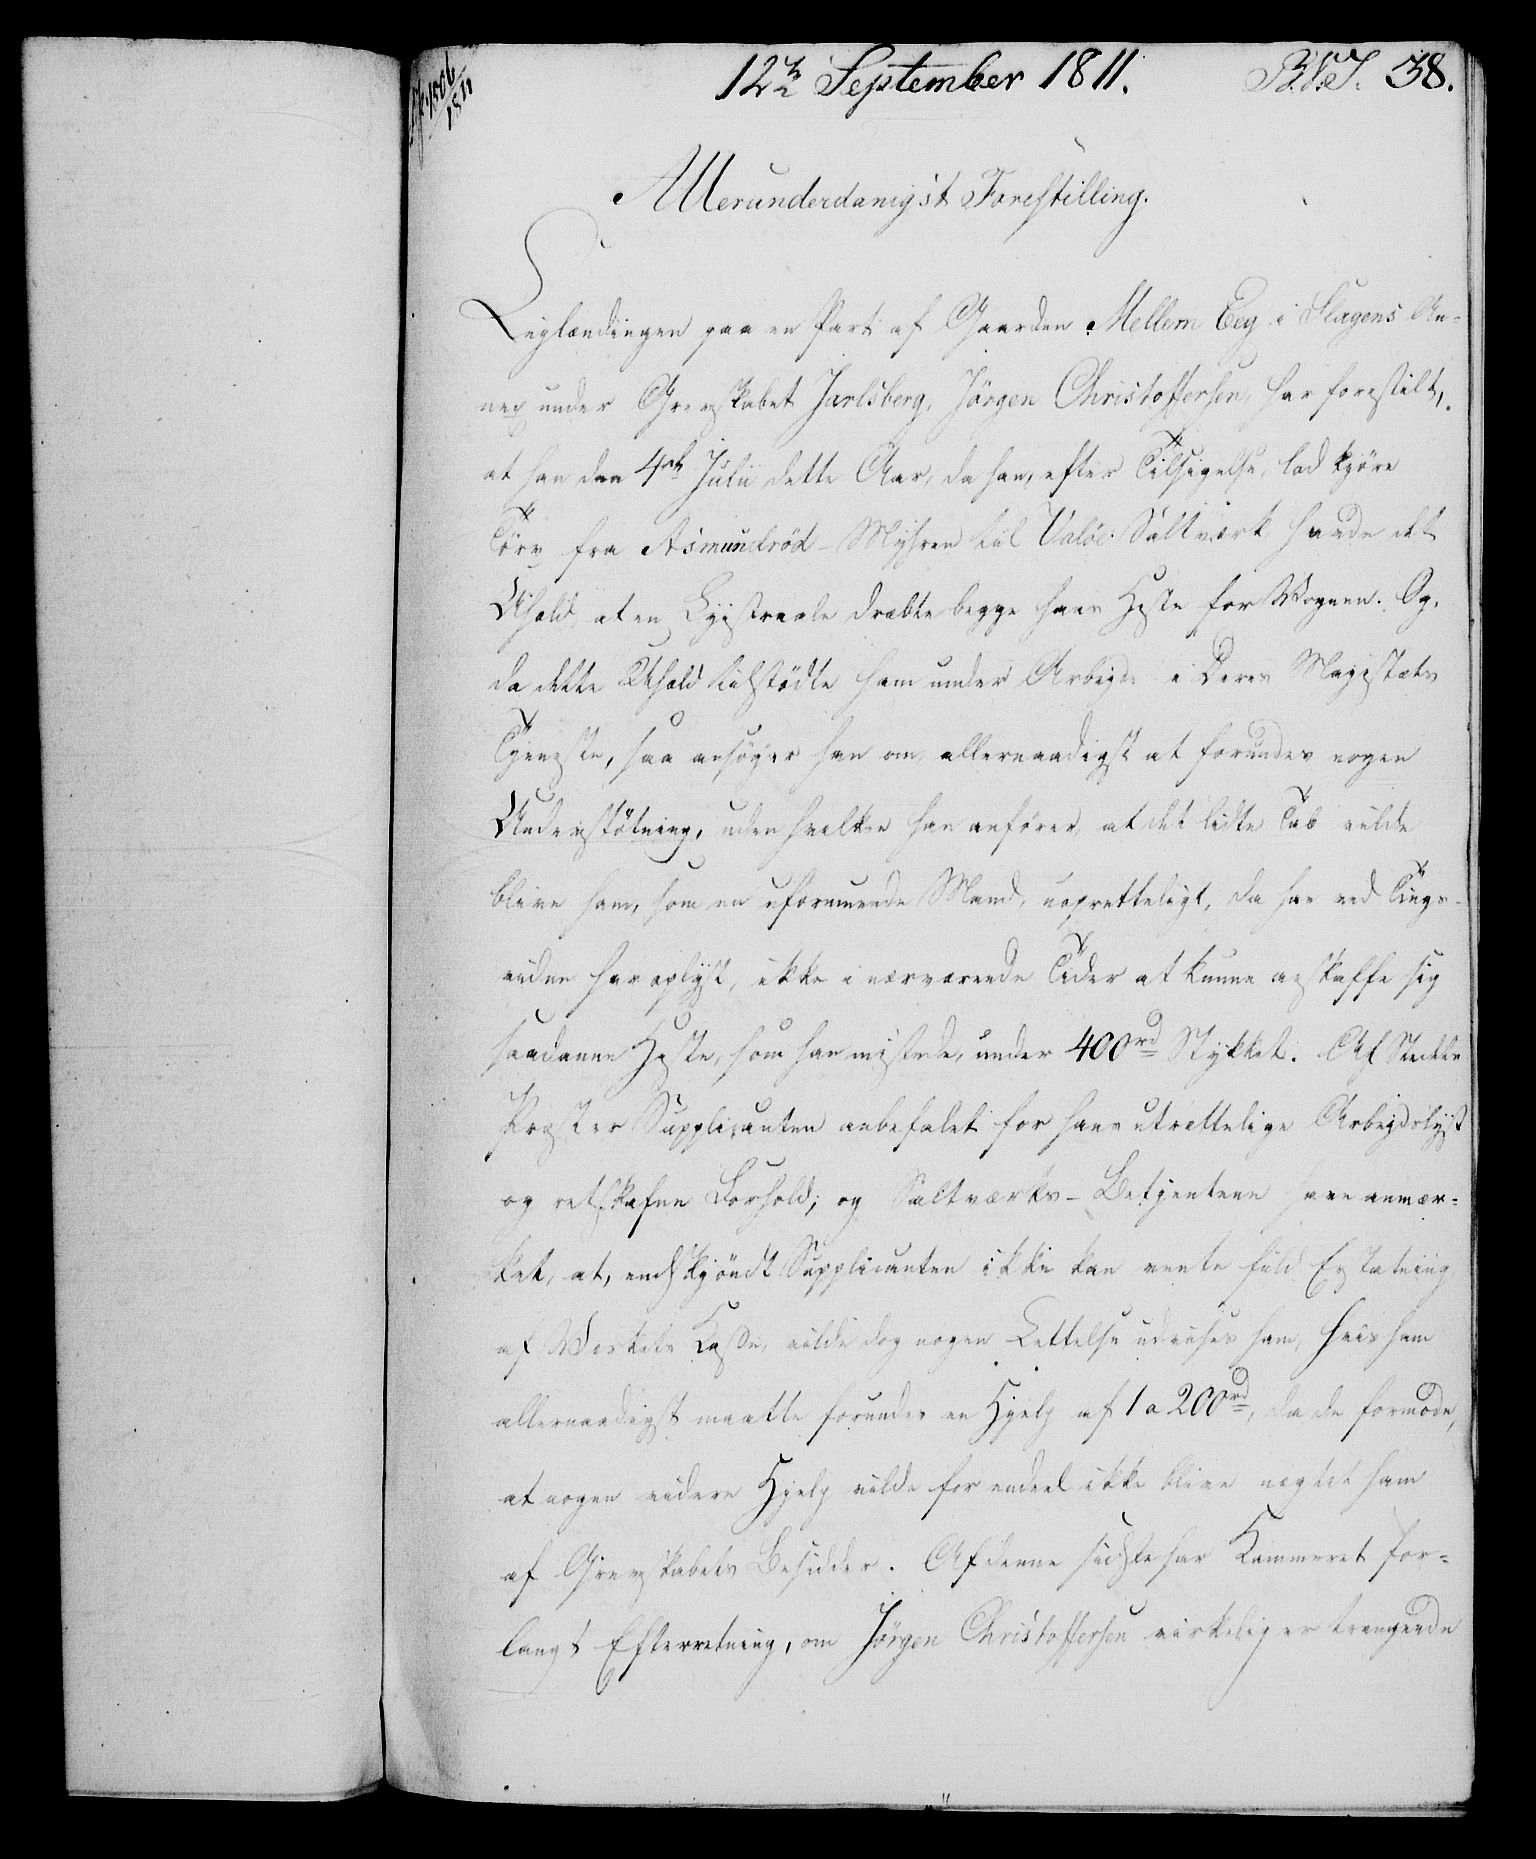 12te September 1811. B.S.T. 38.
1506
1811
Allerunderdanigst Forestilling.
Leylændingen paa en Part af Gaarden Mellem Eeg i Slagens An-
nex under Grevskabet Jarlsberg, Jörgen Christoffersen, har forestilt,
at han den 4de Julii dette Aar, da han, efter Tilsigelse, lod kjöre
Törv fra Asmundröd-Myhren til Valöe Saltværk havde det
Uheld, at en Lynstraale dræbte begge hans Heste for Vognen. Og,
da dette Uheld tilstödte ham under Arbeyde i Deres Majestæts
Tjeneste, saa ansöger han om, allernaadigst at forundes nogen
Understötning, uden hvilken han anförer, at det lidte Tab vilde
blive ham, som en uformuende Mand, uopretteligt, da han ved Tings-
vidne har oplyst, ikke i nærværende Tider at kunne anskaffe sig
saadanne Heste, som han mistede, under 400rd Stykket. Af Stedets
Præst er Supplicanten anbefalet for hans utrættelige Arbejdslyst
og retskafne Forhold; og Saltværks-Betjentene have anmær-
ket, at, endskjöndt Supplicanten ikke kan vente fuld Erstatning
af Værkets Kasse, vilde dog nogen Lettelse udvises ham, hvis ham
allernaadigst maatte forundes en Hjelp af 1 a 200rd, da de formode,
at nogen videre Hjelp vilde for endeel ikke blive nægtet ham
af Grevskabets Besidder. Af denne sidste har Kammeret for-
langt Efterretning, om Jörgen Christoffersen virkelig er trængende